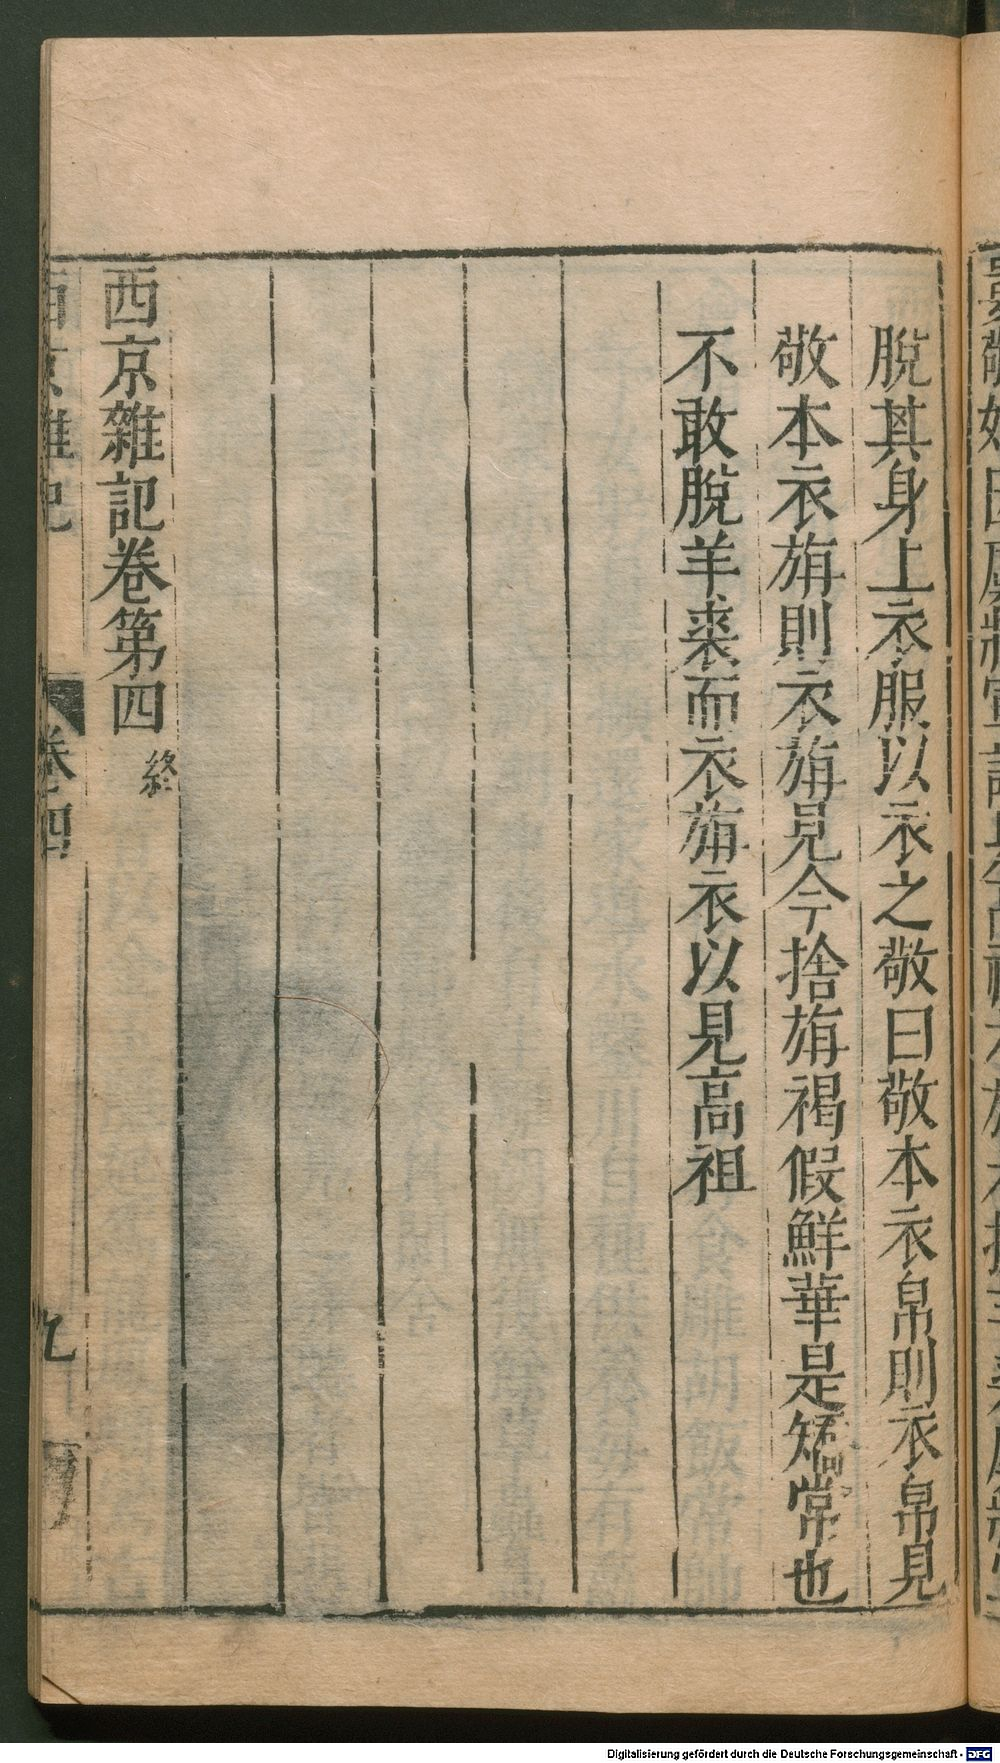 脫其身上衣服以衣之敬曰敬本衣帛則衣帛見
敬本衣旃則衣旃見今捨旃褐假鮮華是矯常也
不敢脫羊裘而衣旃衣以見高祖
西京雜記卷第四 終
西京雜記 卷四 九
Digitalisierung gefördert durch die Deutsche Forschungsgemeinschaft - DFG